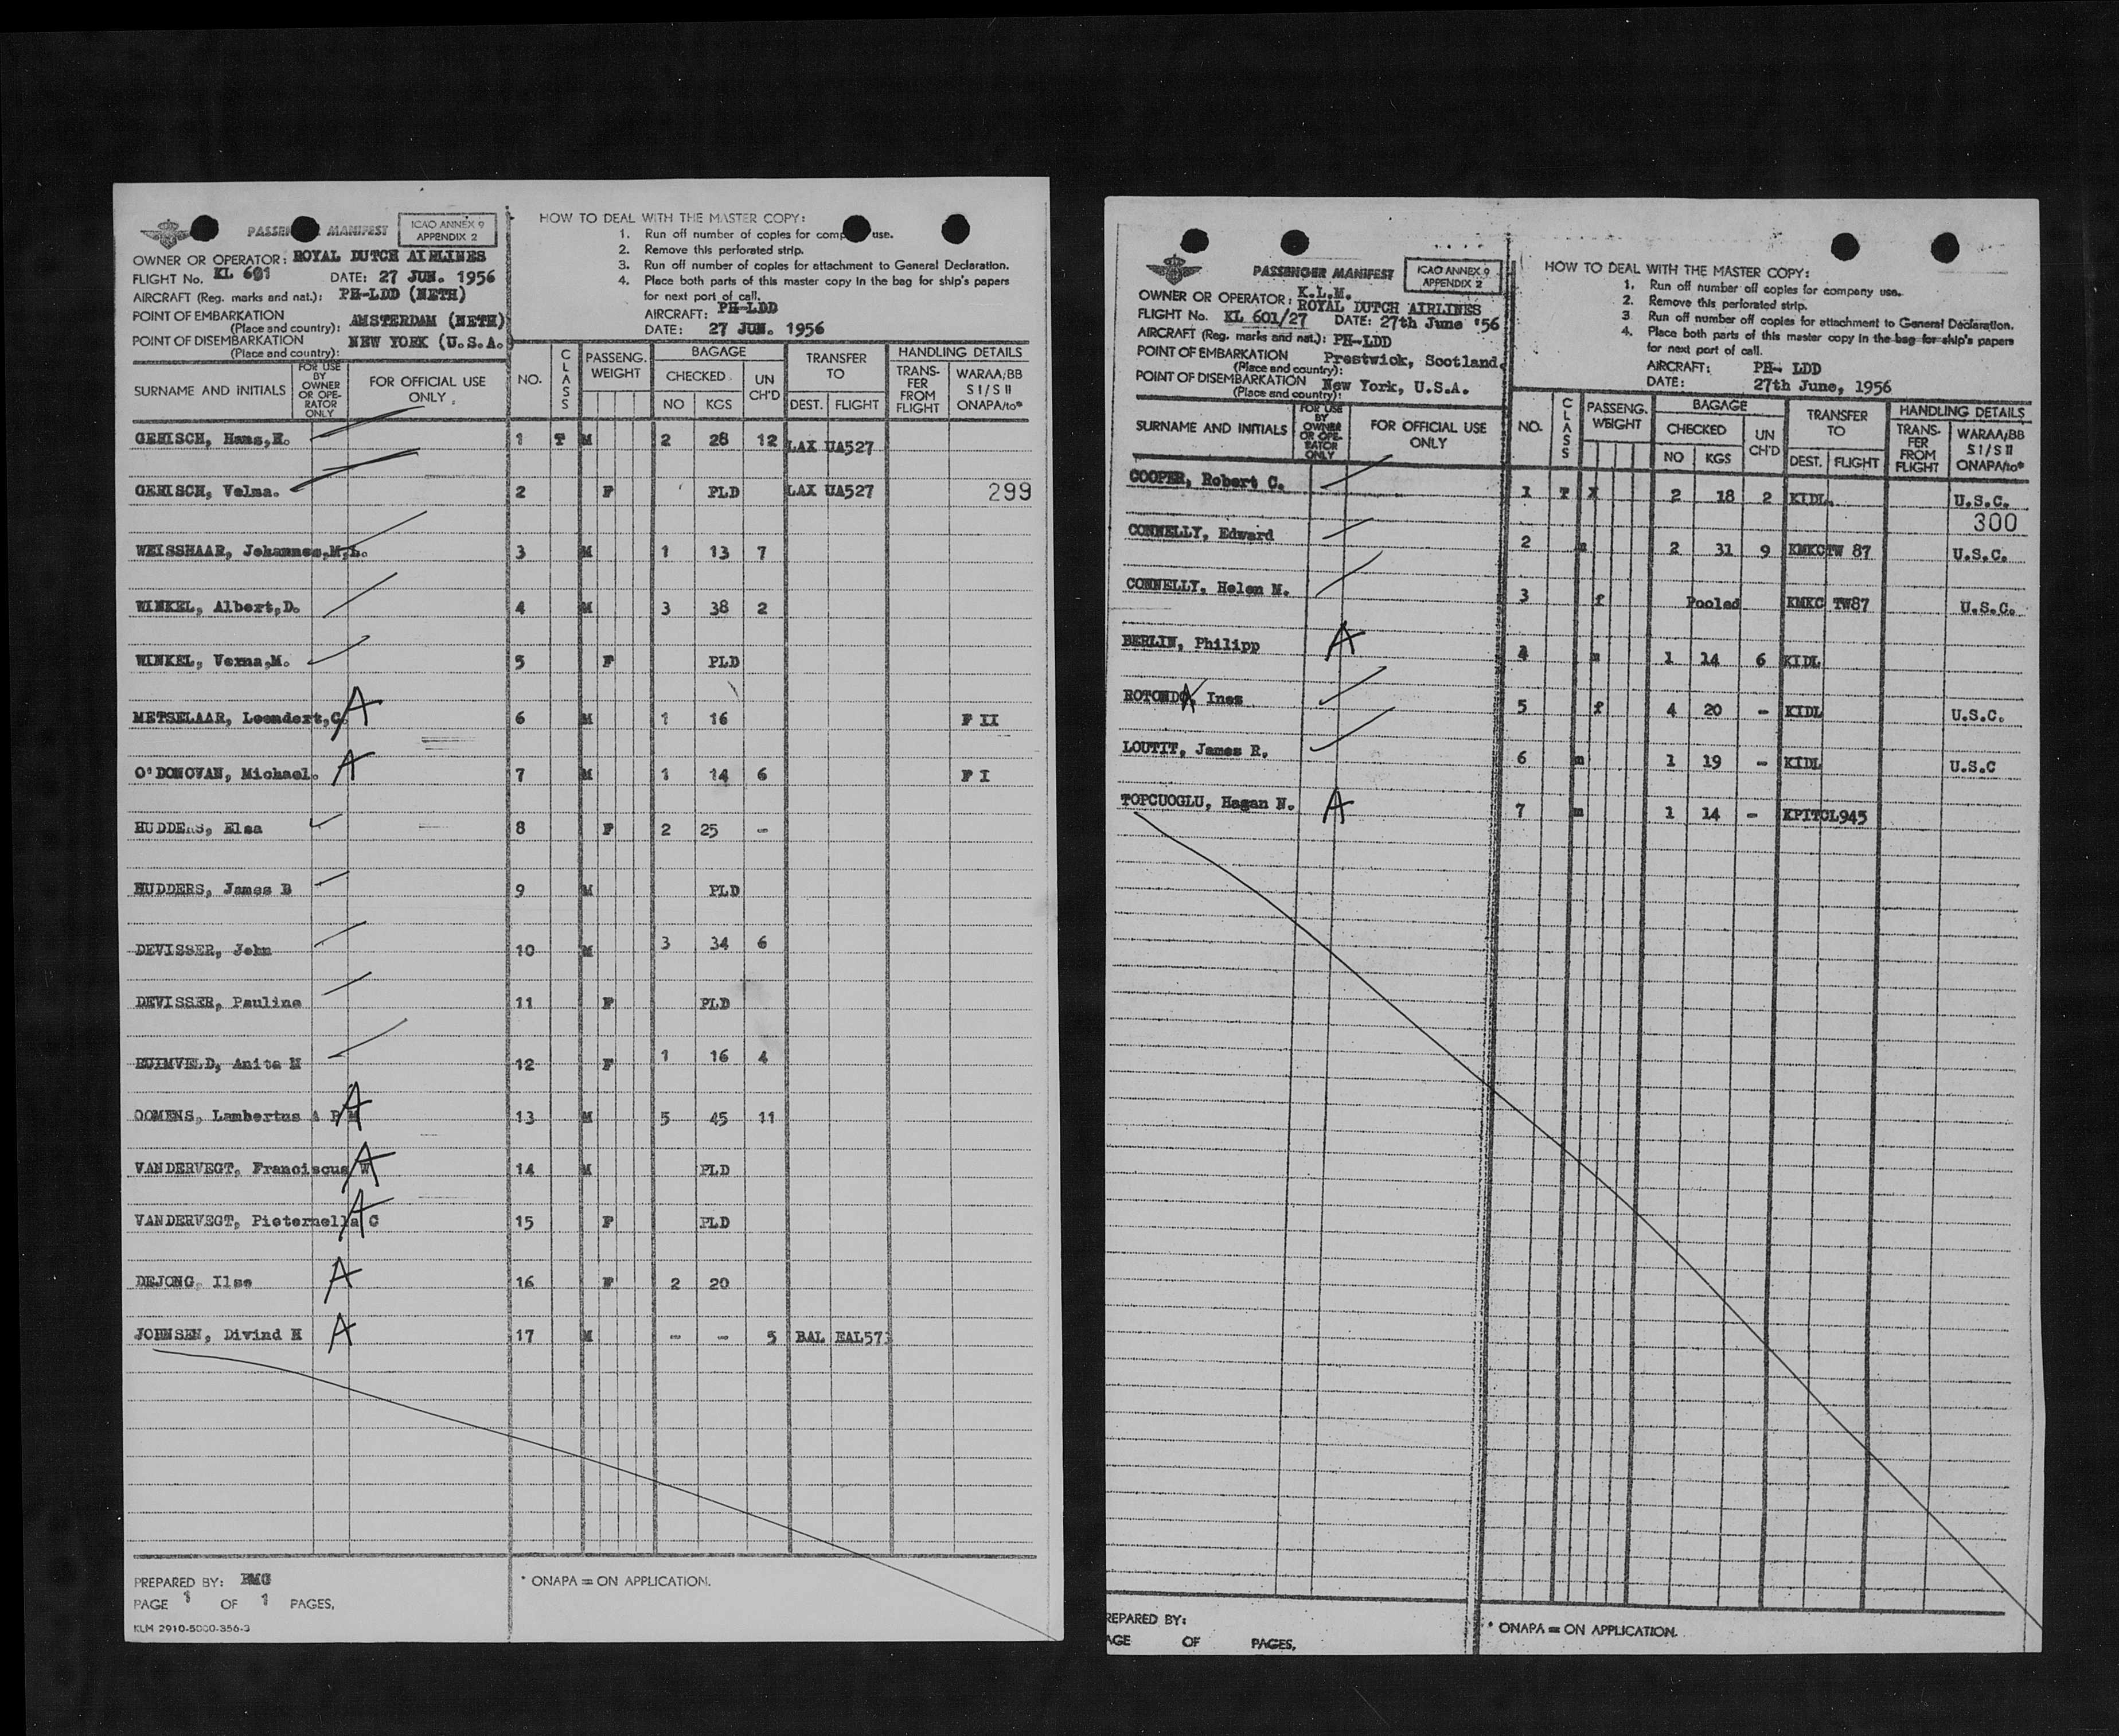 PASSENGER MANIFEST
ICAO ANNEX 9
APPENDIX 2
OWNER OR OPERATOR: ROYAL DUTCH AIRLINES
FLIGHT No. KL 601 DATE: 27 JUN. 1956
AIRCRAFT (Reg. marks and nat.): PH-LDD (NETH)
POINT OF EMBARKATION
(Place and country): AMSTERDAM (NETH)
POINT OF DISEMBARKATION
(Place and country): NEW YORK (U.S.A.
HOW TO DEAL WITH THE MASTER COPY:
1. Run off number of copies for comp use.
2. Remove this perforated strip.
3. Run off number of copies for attachment to General Declaration.
4. Place both parts of this master copy in the bag for ship's papers
for next port of call.
AIRCRAFT: PH-LDD
DATE: 27 JUN. 1956
SURNAME AND INITIALS FOR USE BY OWNER OR OPE- RATOR ONLY FOR OFFICIAL USE ONLY NO. CLASS PASSENG. WEIGHT BAGAGE CHECKED NO KGS UN CH'D TRANSFER TO DEST. FLIGHT HANDLING DETAILS TRANS- FER FROM FLIGHT WARAA/BB S I/S II ONAPA/to*
GERISCH, Hans,H. 1 T M 2 28 12 LAX UA527
GERISCH, Velma. 2 F PLD LAX UA527 299
WEISSHAAR, Johannes,M,L. 3 M 1 13 7
WINKEL, Albert,D. 4 M 3 38 2
WINKEL, Verna,M. 5 F PLD
METSELAAR, Leendert,C. A 6 M 1 16 F II
O'DONOVAN, Michael. A 7 M 1 14 6 F I
HUDDERS, Elsa 8 F 2 25 -
HUDDERS, James B 9 M PLD
DEVISSER, John 10 M 3 34 6
DEVISSER, Pauline 11 F PLD
RUIMVELD, Anita M 12 F 1 16 4
OOMENS, Lambertus A P M A 13 M 5 45 11
VANDERVEGT, Franciscus W A 14 M PLD
VANDERVEGT, Pieternella C A 15 F PLD
DEJONG, Ilse A 16 F 2 20
JOHNSEN, Divind H A 17 M - - 5 BAL EAL573
PREPARED BY: BMG
PAGE 1 OF 1 PAGES,
* ONAPA = ON APPLICATION.
KLM 2910-5000-356-3
PASSENGER MANIFEST
ICAO ANNEX 9
APPENDIX 2
K.L.M.
OWNER OR OPERATOR: ROYAL DUTCH AIRLINES
FLIGHT No. KL 601/27 DATE: 27th June '56
AIRCRAFT (Reg. marks and nat.): PH-LDD
POINT OF EMBARKATION Prestwick, Scotland,
(Place and country):
POINT OF DISEMBARKATION New York, U.S.A.
(Place and country):
HOW TO DEAL WITH THE MASTER COPY:
1. Run off number off copies for company use.
2. Remove this perforated strip.
3 Run off number off copies for attachment to General Declaration.
4. Place both parts of this master copy in the bag for ship's papers
for next port of call.
AIRCRAFT: PH- LDD
DATE: 27th June, 1956
SURNAME AND INITIALS FOR USE BY OWNER OR OPE- RATOR ONLY FOR OFFICIAL USE ONLY NO. CLASS PASSENG. WEIGHT BAGAGE CHECKED NO KGS UN CH'D TRANSFER TO DEST. FLIGHT HANDLING DETAILS TRANS- FER FROM FLIGHT WARAA/BB S I/S II ONAPA/to*
COOPER, Robert C. 1 T X 2 18 2 KIDL U.S.C.
300
CONNELLY, Edward 2 m 2 31 9 KMKC TW 87 U.S.C.
CONNELLY, Helen M. 3 f Pooled KMKC TW87 U.S.C.
BERLIN, Philipp A 4 m 1 14 6 KIDL
ROTONDO, Ines 5 f 4 20 - KIDL U.S.C.
LOUTIT, James R. 6 m 1 19 - KIDL U.S.C
TOPCUOGLU, Hagan N. A 7 m 1 14 - KPIT CL945
REPARED BY:
AGE OF PAGES,
* ONAPA = ON APPLICATION.